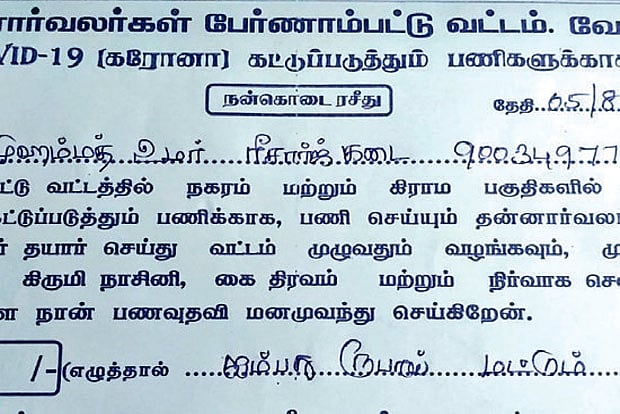 ார்வலர்கள் பேர்ணாம்பட்டு வட்டம். வே
VID-19 (கரோனா) கட்டுப்படுத்தும் பணிகளுக்காக
நன்கொடை ரசீது
தேதி..05/8
முஹம்மத் உமர் ரீசார்ஜ் கடை 9003497
ட்டு வட்டத்தில் நகரம் மற்றும் கிராம பகுதிகளில்
கட்டுப்படுத்தும் பணிக்காக, பணி செய்யும் தன்னார்வலர்
ர் தயார் செய்து வட்டம் முழுவதும் வழங்கவும், மு
கிருமி நாசினி, கை திரவம் மற்றும் நிர்வாக செ
ள நான் பணவுதவி மனமுவந்து செய்கிறேன்.
/-(எழுத்தால் ......ஐம்பது ரூபாய் மட்டும்